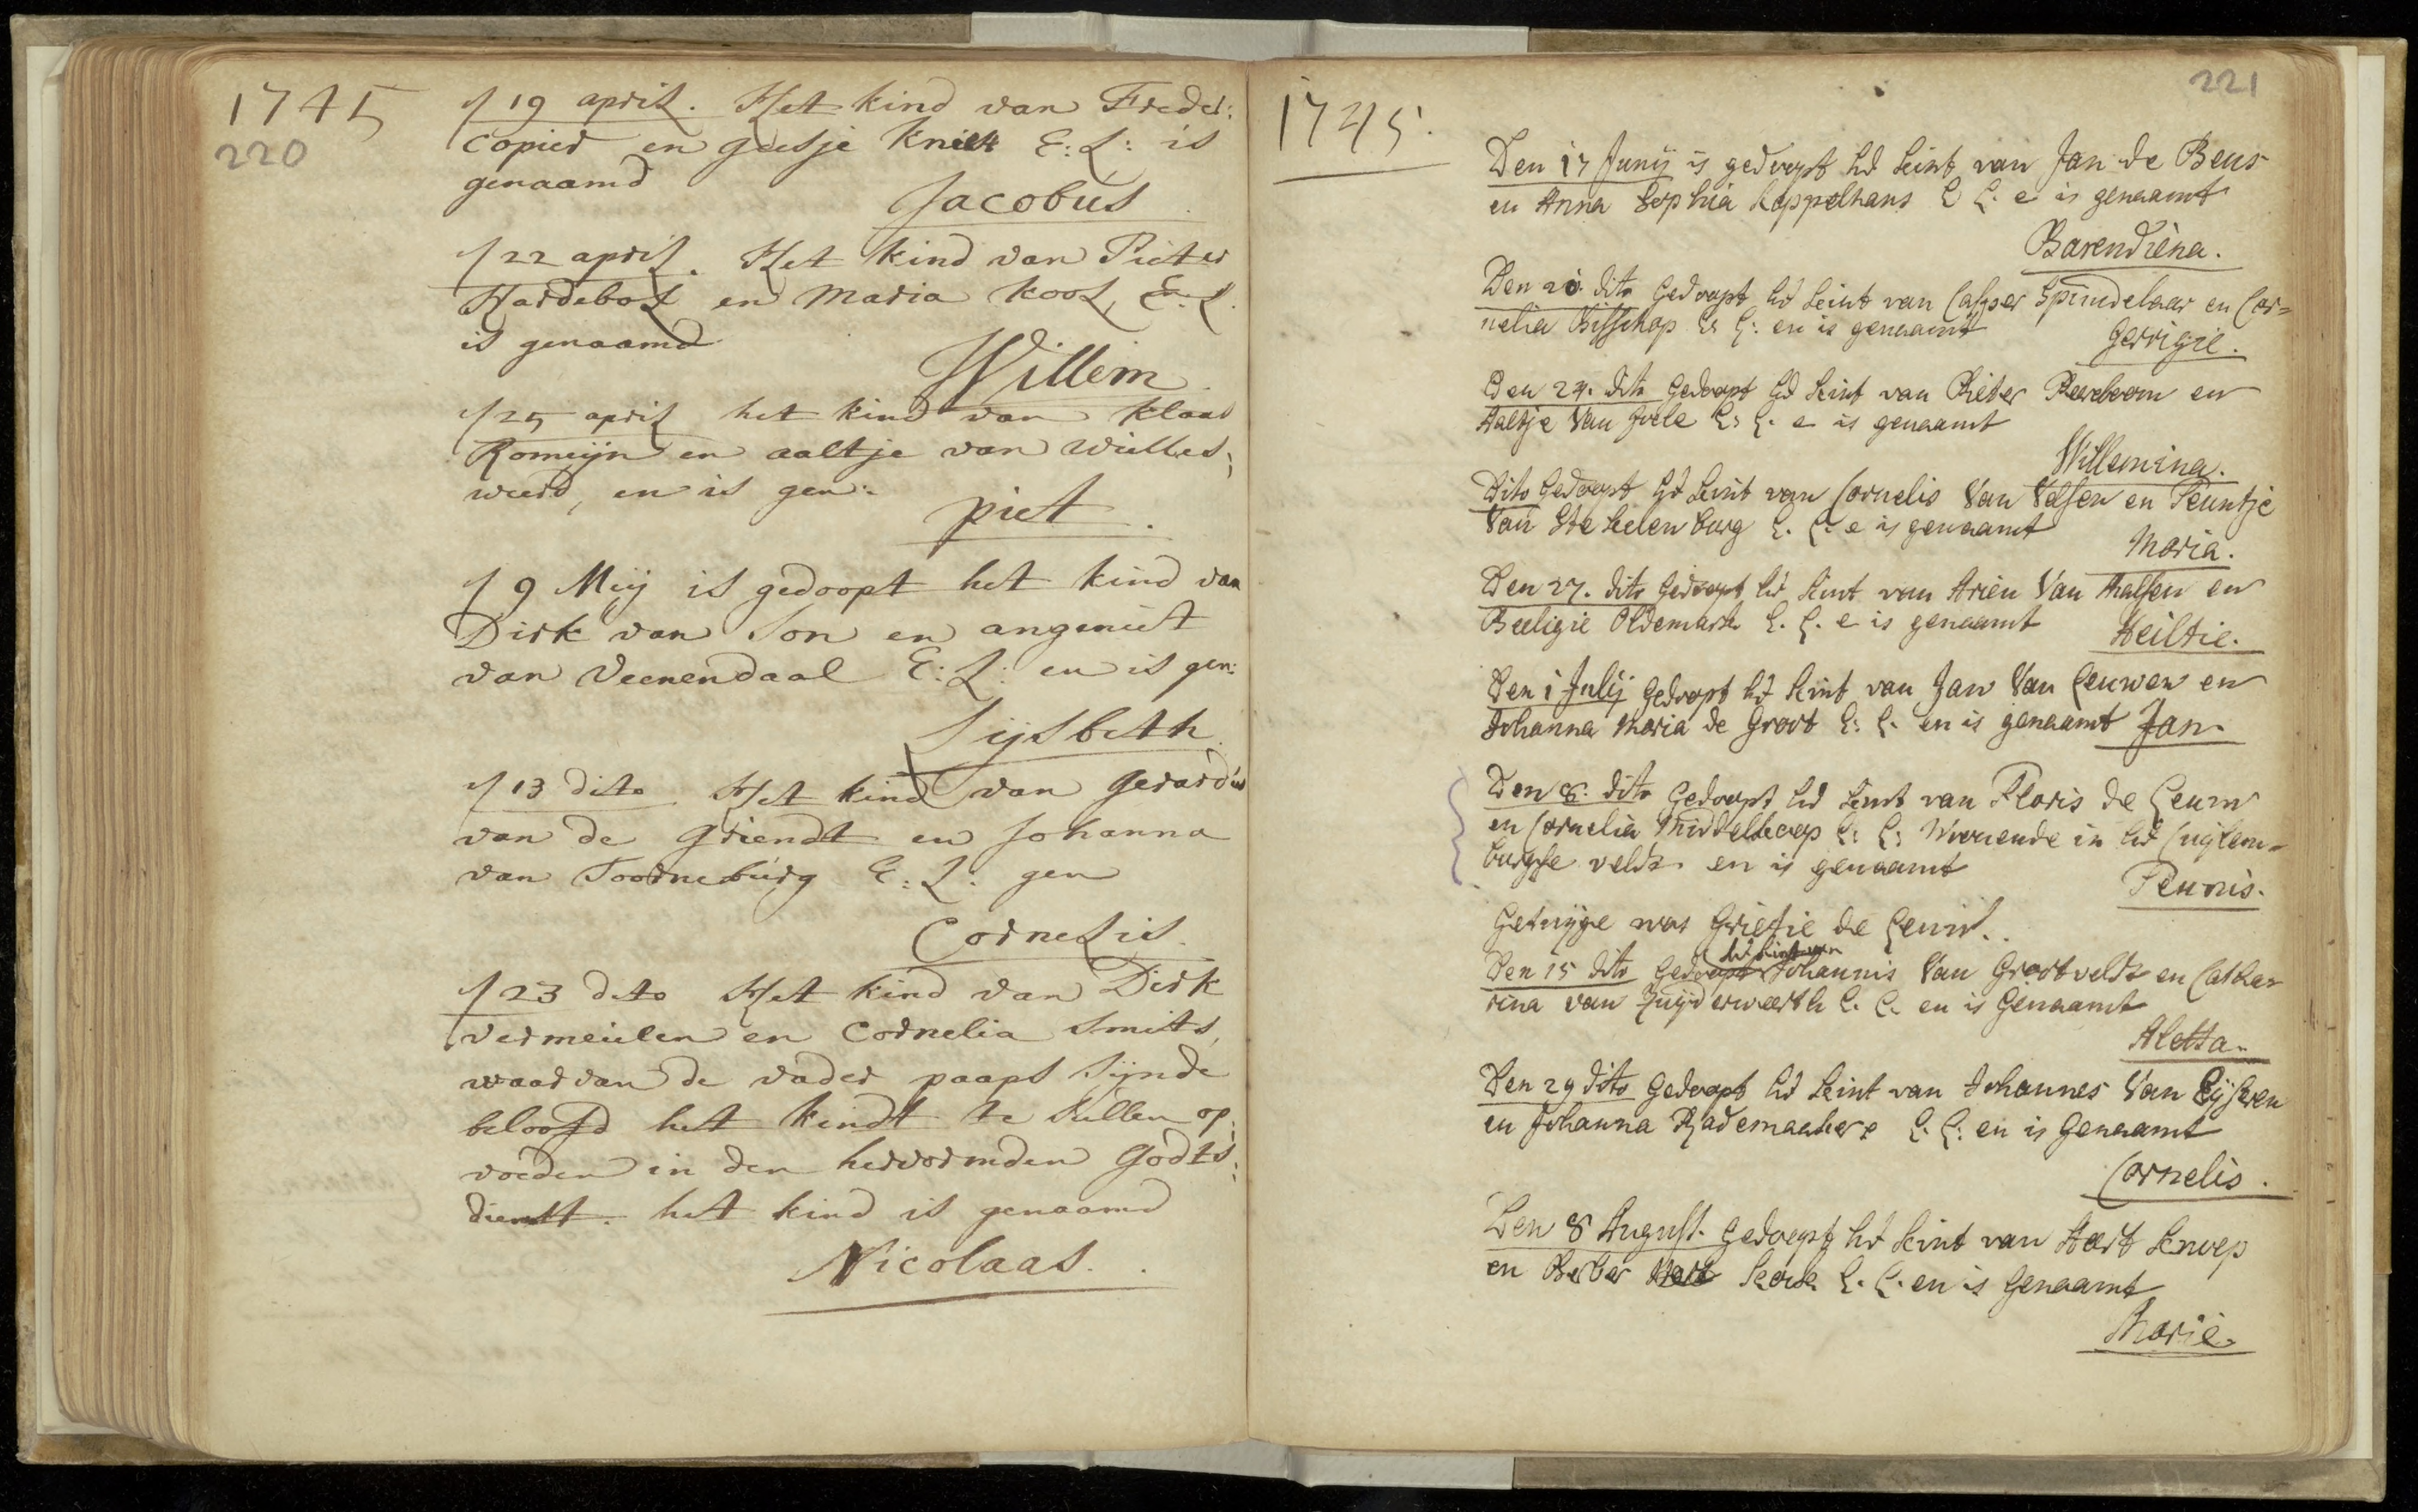 1745
220
1/19 april. Het kind van Freder:
Copier en geesje Kniek E: L: is
genaamd
Jacobus
1/22 april. Het kind van Pieter
Hardebol en Maria Kool, E: L.
is genaamd
Willem
1/25 april het kind van Klaas
Romeijn en aaltje van Willes;
weerd, en is gen:
piet
1/9 Meij is gedoopt het kind van
Dirk van Son en angeniet
van Veenendaal E: L: en is gen:
Lijsbeth
1/13 dito Het kind van Gerardus
van de Griendt en Johanna
van Toorneburg E: L: gen
Cornelis.
1/23 dito Het kind van Dirk
vermeulen en Cornelia Smits,
waar van de vader paaps Sijnde
beloofd het kindt te Sullen op:
voeden in den hervormden Godts:
dienst. het kind is genaamd
Nicolaas.
221
1745.
Den 17 Junij is gedoopt het kint van Jan de Beus
en Anna Sophia Koppelhans E L. e is genaamt
Barendiena.
Den 20 dito Gedoopt het kint van Casper Spindelaar en Cor=
nelia Bisschop E: L: en is genaamt
Gerrigie.
Den 24. dito Gedoopt het kint van Pieter Pereboom en
Aaltje Van Zoele E: L. e is genaamt
Willemina.
Dito Gedoopt het kint van Cornelis Van Velsen en Teuntje
Van Stekelenburg E. L. e is genaamt
Maria.
Den 27. dito Gedoopt het kint van Arien Van Malsen en
Beeligie Oldemark E. L. e is genaamt
Heiltie.
Den 1 Julij Gedoopt het kint van Jan Van Leuwen en
Johanna Maria de Groot E: L. en is genaamt Jan.
Den 8. dito Gedoopt het kint van Floris de Leuw
en Cornelia Middelkoop E: L: Woonende in het Cuijlem-
burgse veldt en is genaamt
Teunis.
Getuijge was Grietie de Leuw.
het kint van
Den 15 dito Gedoopt Johannis Van Grootveldt en Catha-
rina van Zuijderweerth E. L. en is Genaamt
Aletta.
Den 29 dito Gedoopt het kint van Johannes Van Eijkeren
en Johanna Rademaakers E. L: en is Genaamt
Cornelis.
Den 8 August. Gedoopt het kint van Aart Knoep
en Berber Kork E. L. en is Genaamt
Marie.